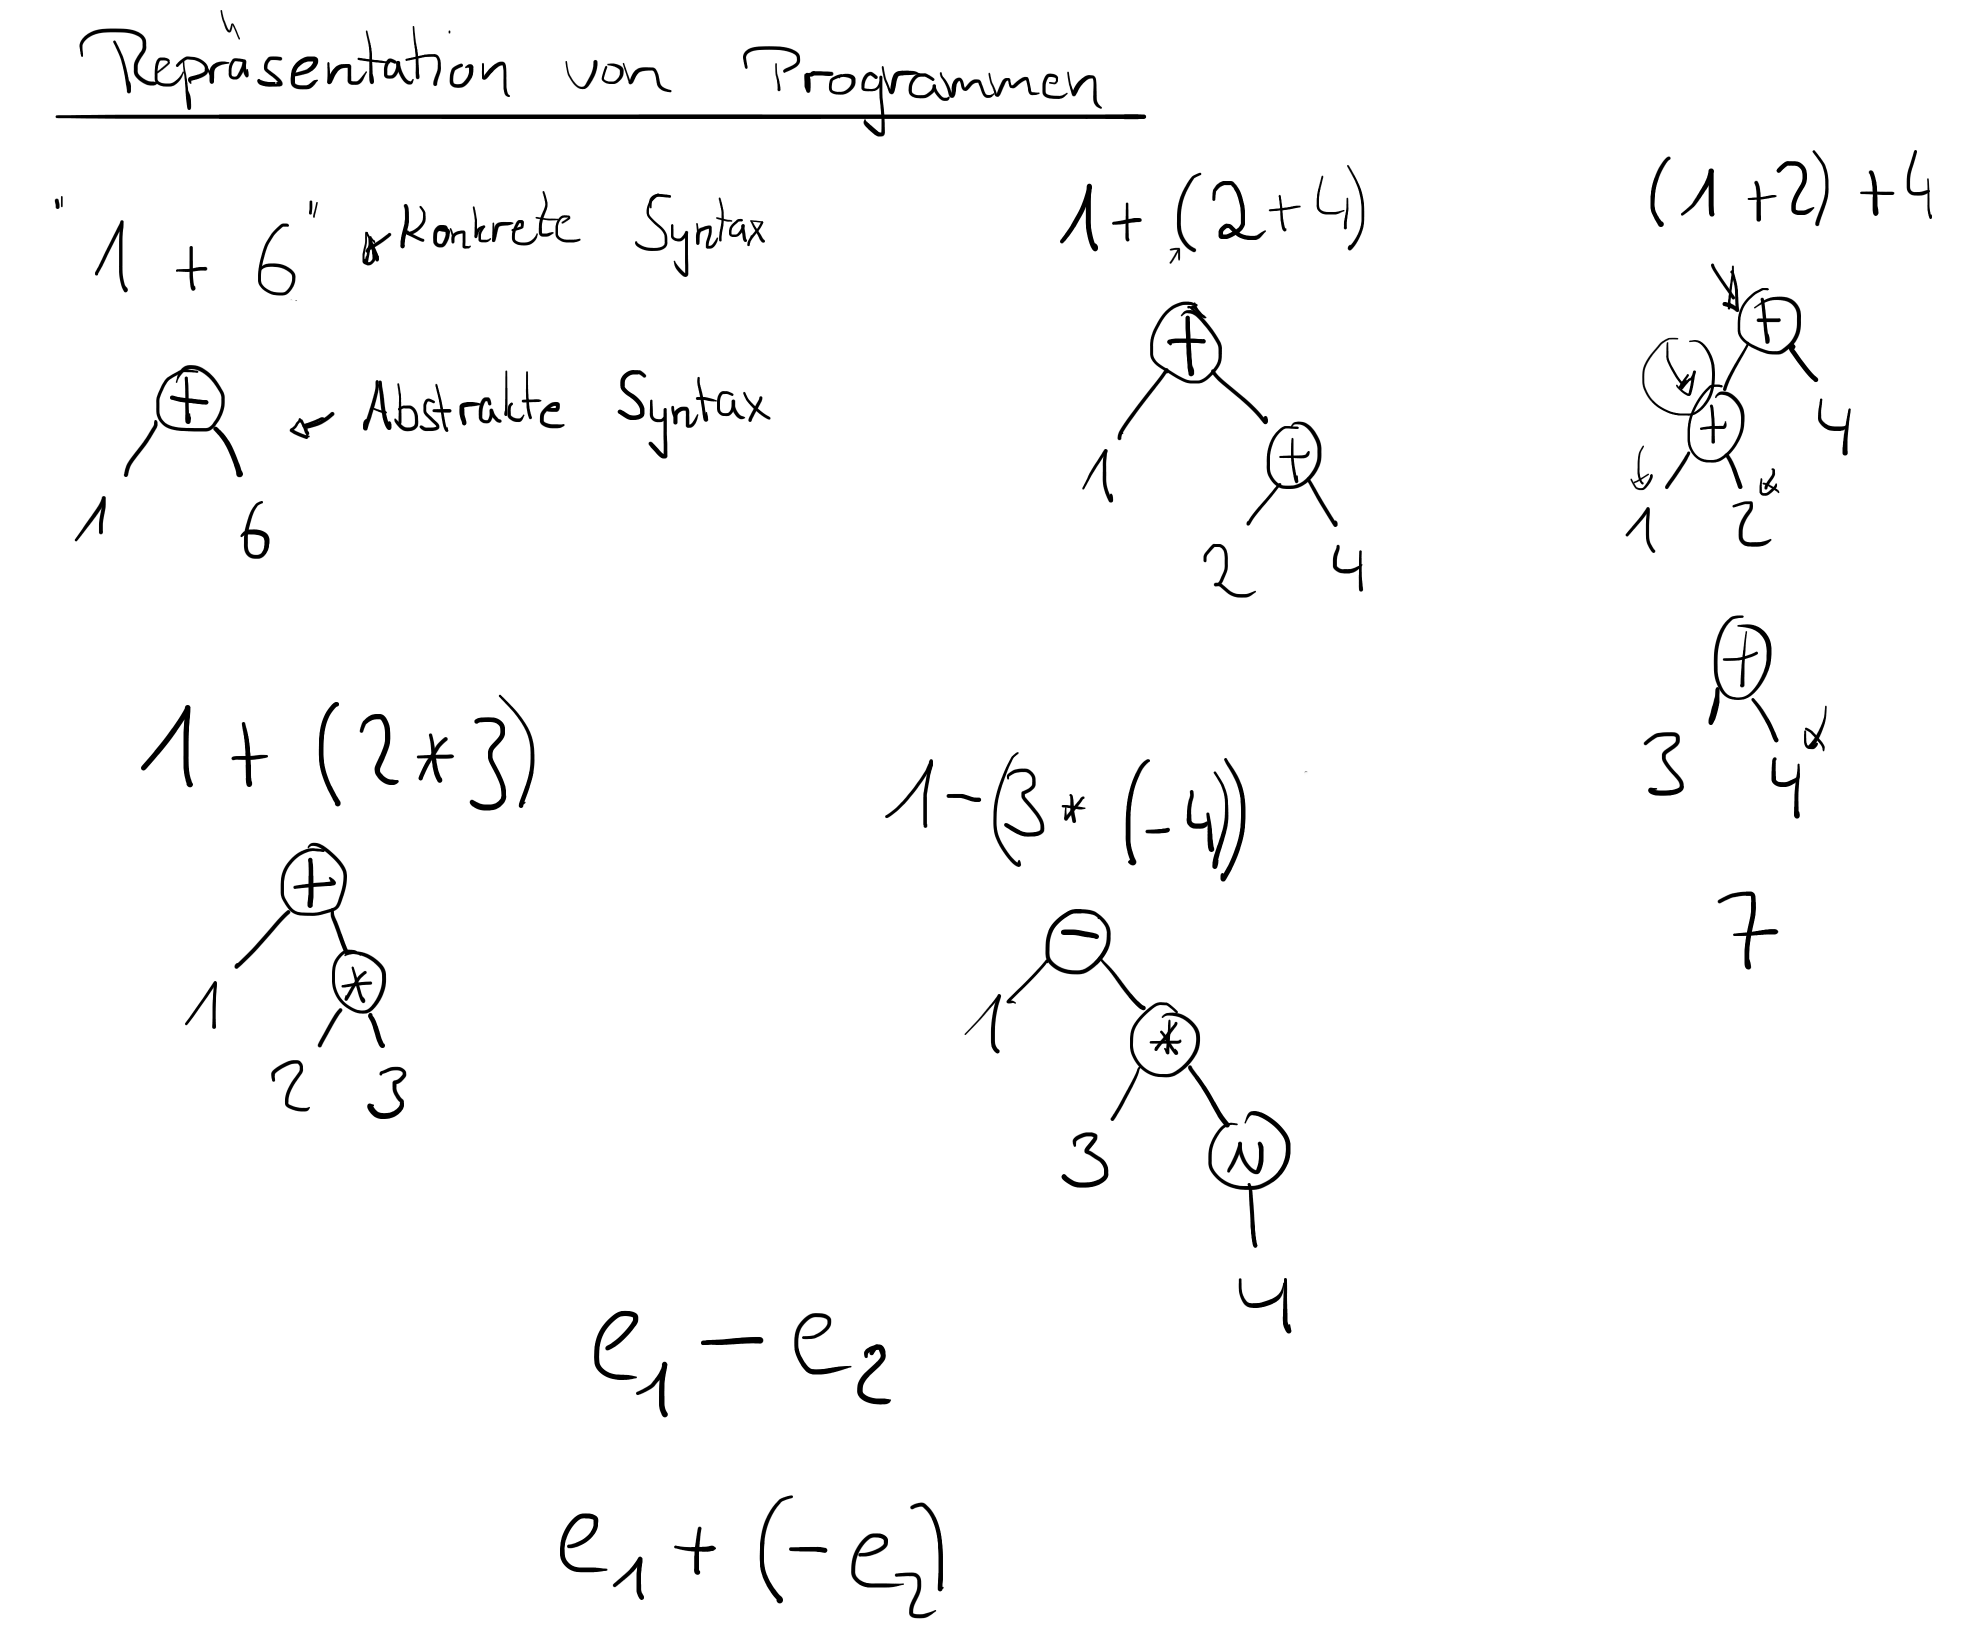 Repräsentation von Programmen
"1 + 6" Konkrete Syntax
+
1 6
Abstrakte Syntax
1+(2+4)
+
1 +
2 4
(1+2)+4
+
+ 4
1 2
+
3 4
7
1+(2*3)
+
1 *
2 3
1-(3*(-4))
-
1 *
3 N
4
e1 - e2
e1 + (-e2)